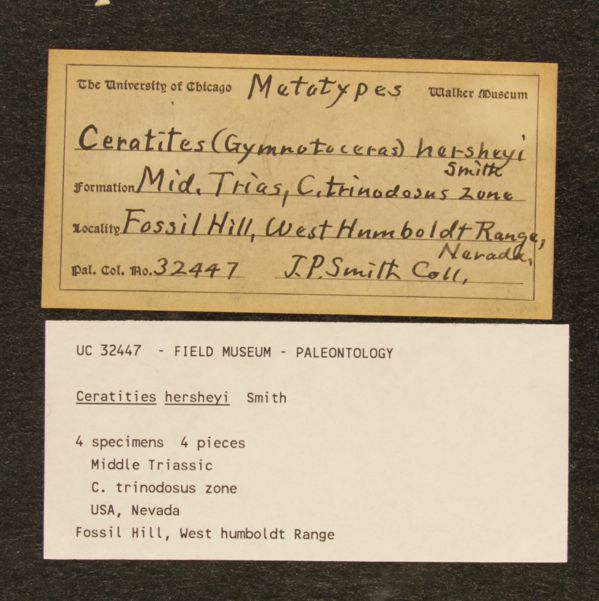 The University of Chicago Metatypes Walker Museum
Ceratites (Gymnotoceras) hersheyi
Smith
Formation Mid. Trias, C. trinodosus zone
Locality Fossil Hill, West Humboldt Range,
Nevada,
Pal. Col. No. 32447 J.P. Smith Coll,
UC 32447 - FIELD MUSEUM - PALEONTOLOGY
Ceratities hersheyi Smith
4 specimens 4 pieces
Middle Triassic
C. trinodosus zone
USA, Nevada
Fossil Hill, West humboldt Range